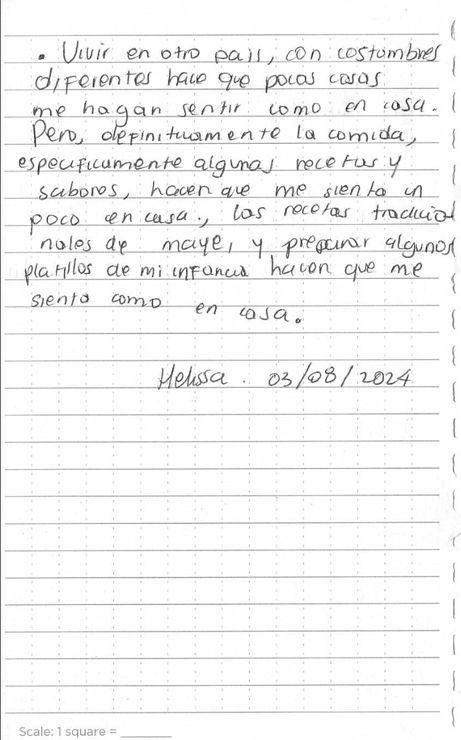 . Vivir en otro pais, con costumbres
diferentes hace que pocas cosas
me hagan sentir como en casa.
Pero, definitivamente la comida,
especificamente algunas recetas y
sabores, hacen que me sienta un
poco en casa., las recetas tradicio
nales de maye, y preparar algunos
platillos de mi infancia hacen que me
siento como en casa.
Melissa. 03/08/2024
Scale: 1 square =